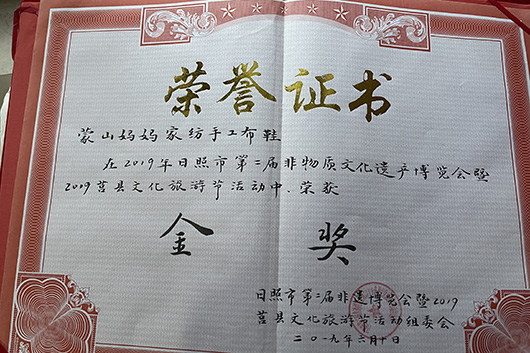 荣誉证书
蒙山妈妈家纺手工布鞋
在2019年日照市第二届非物质文化遗产博览会暨
2019莒县文化旅游节活动中、荣获
金 奖
日照市第二届非遗博览会暨2019
莒县文化旅游节活动组委会
二〇一九年六月十日